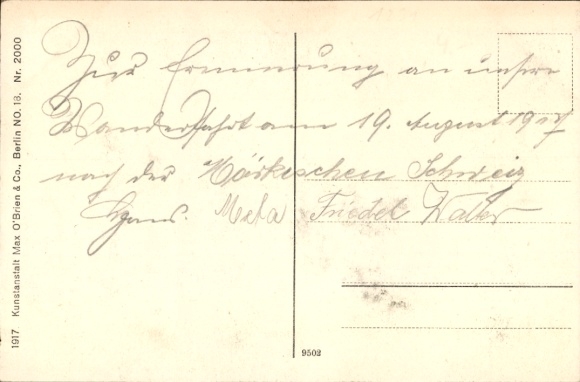 Zur Erinnerung an unsere
Wanderfahrt am 19. August 1917
nach der Märkischen Schweiz
Hans. Meta Friedel Walter
1917 Kunstanstalt Max O'Brien & Co., Berlin NO. 18. Nr. 2000
9502